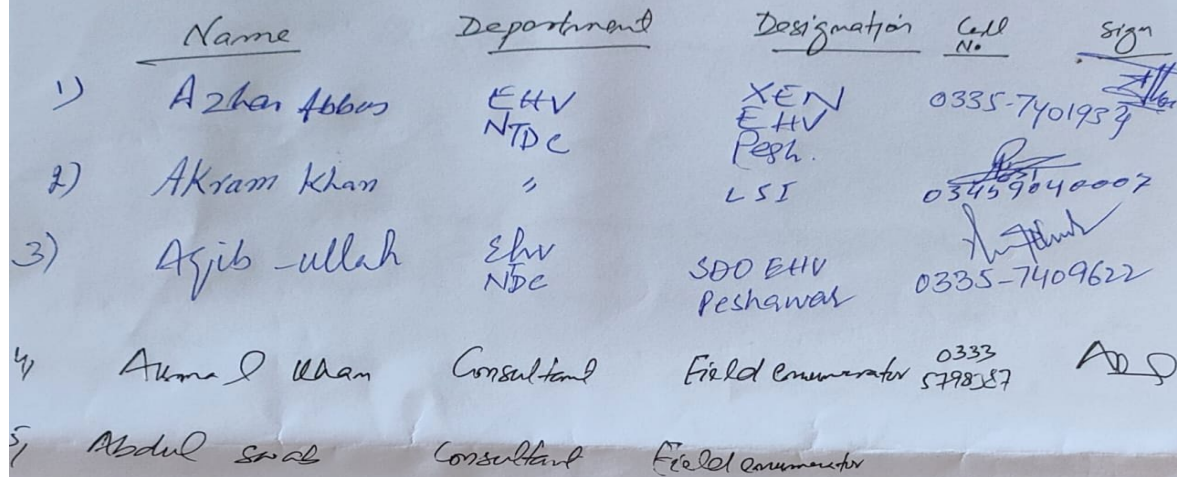 Name Department Designation Cell No. Sign
1) Azhar Abbas EHV NTDC XEN EHV Pesh.
2) Akram Khan " LSI 03459040007
3) Aqib-ullah Ehv NTDC SDO EHV Peshawar 0335-7409622
4) Khan Consultant Field enumerator 0333
5) Abdul Consultant Field enumerator